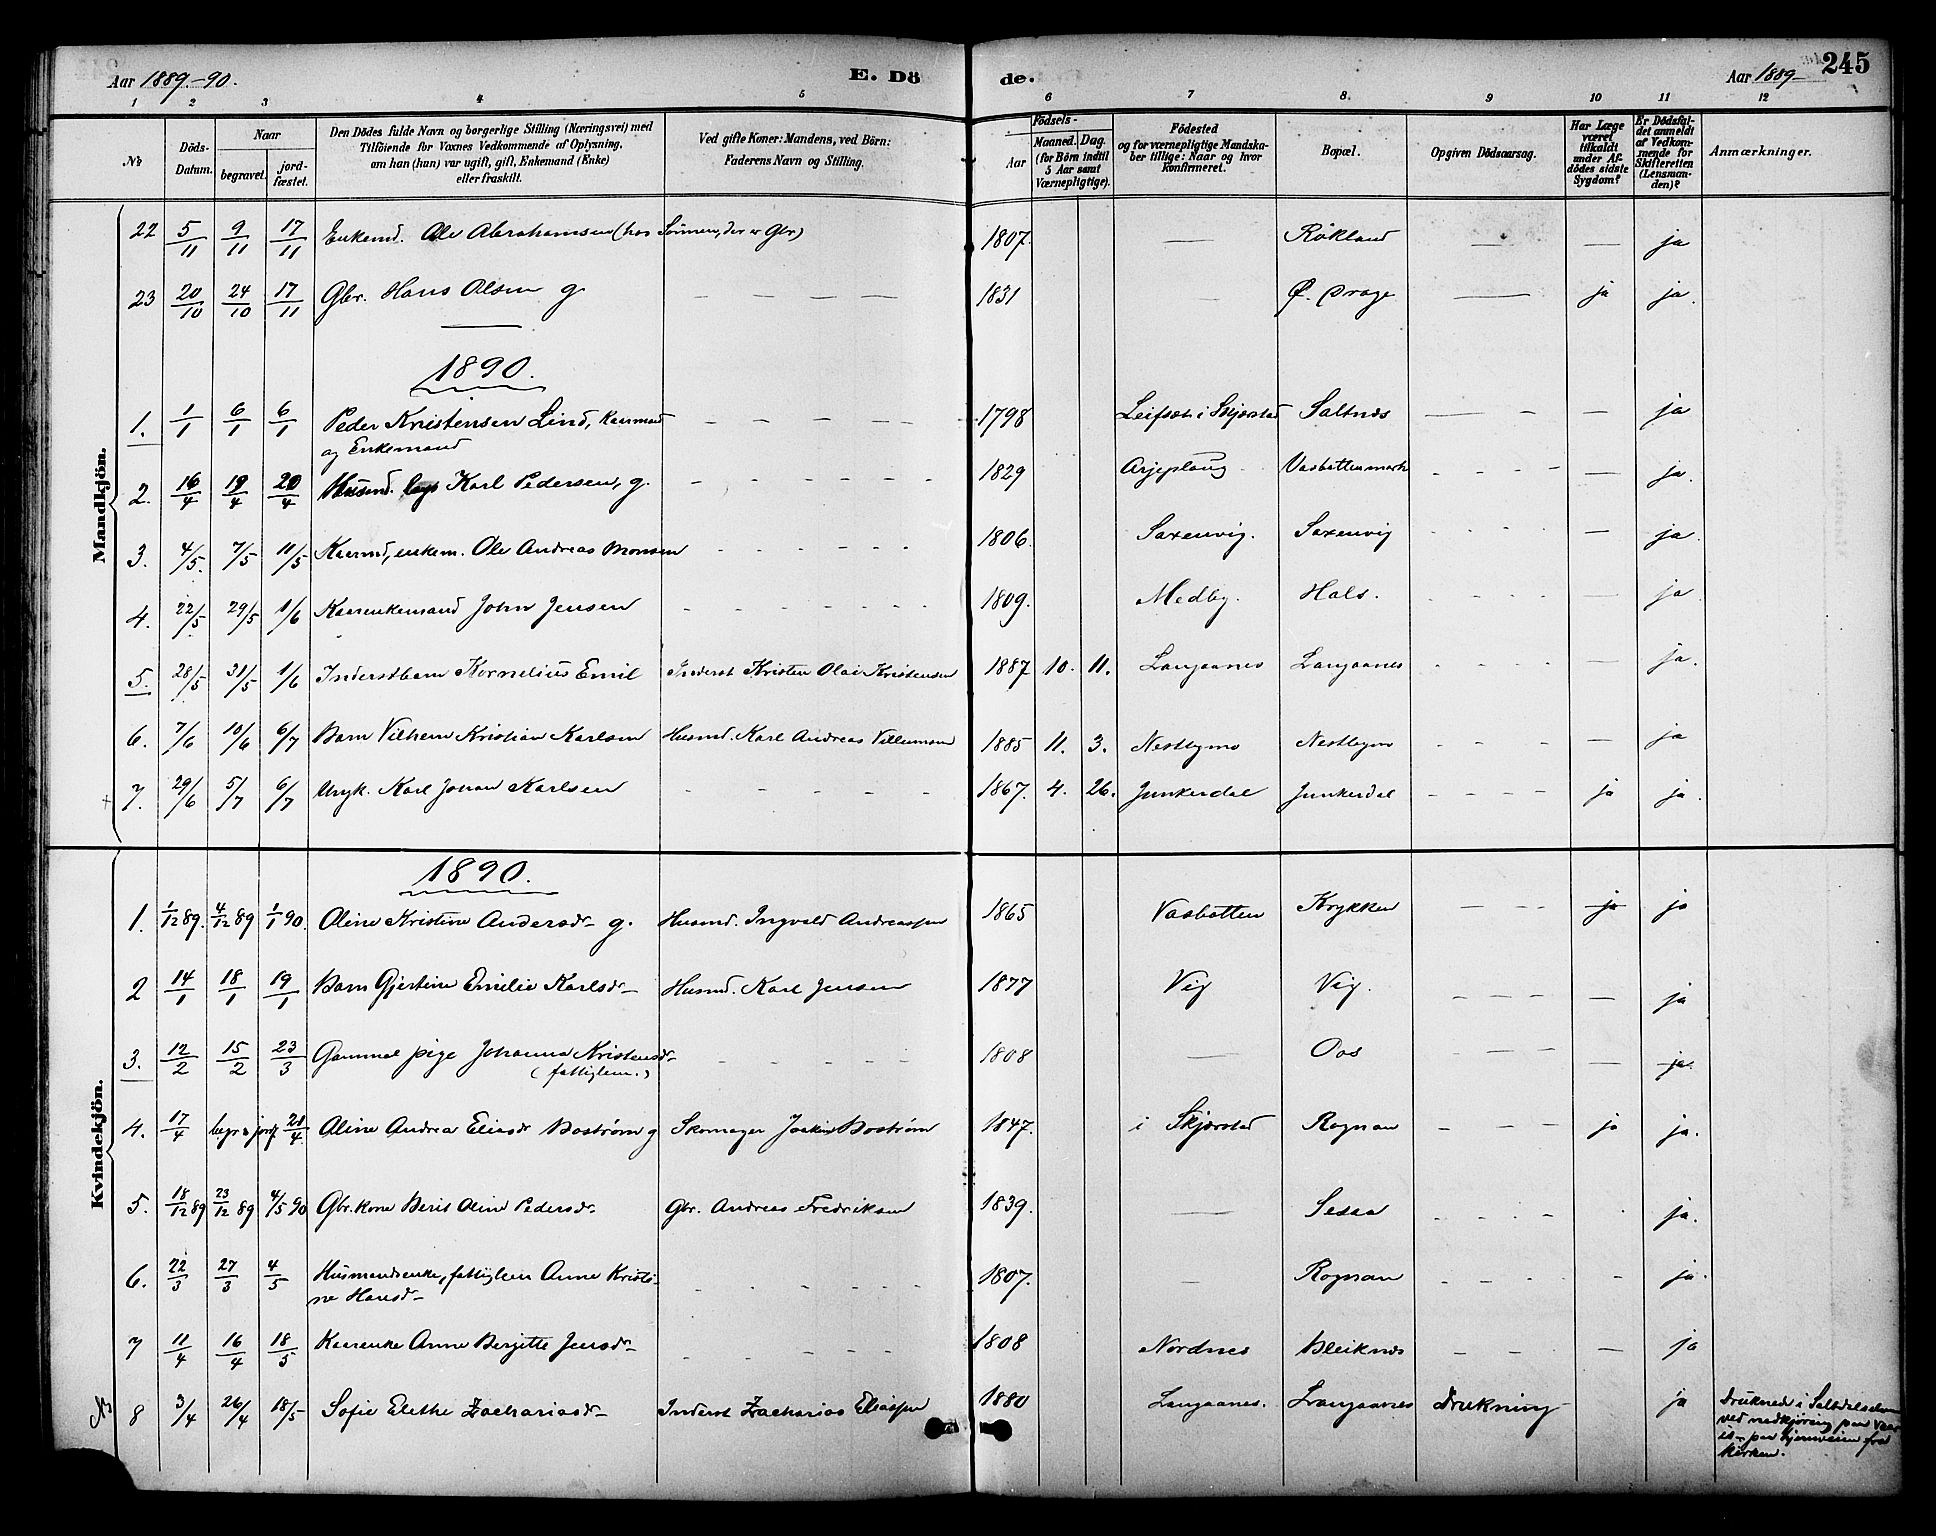 Aar 1889-90. E. Dö de. Aar 1889- 245
1 2 3 4 5 6 7 8. 9 10 11 12
No Döds-Datum. Naar begravet. jordfæstet. Den Dödes fulde Navn og borgerlige Stilling (Næringsvei) med Tilföiende for Voxnes Vedkommende af Oplysning. om han (hun) var ugift, gift, Enkemand (Enke) eller fraskilt. Ved gifte Koner: Mandens, ved Börn: Faderens Navn og Stilling. Födsels- Aar Maaned. Dag. (for Börn indtil 5 Aar samt Værnepligtige). Födested og for værnepligtige Mandskaber tillige: Naar og hvor konfirmeret. Bopæl. Opgiven Dödsaarsag. Har Læge været tilkaldt under Afdödes sidste Sygdom? Er Dödsfaldet anmeldt af Vedkommende for Skifteretten (Lensmanden)? Anmærkninger.
Mandkjön.
22 5/11 9/11 17/11 Enkemd. Ole Abrahamsen (hos Sönnen, der er Gbr) 1807. — Rökland — — ja
23 20/10 24/10 17/11 Gbr. Hans Olsen g. — — — — 1831 — Ø. Drage — ja ja.
1890.
1. 1/1 6/1 6/1 Peder Kristensen Lind, Kaarmand - - - - - 1798 Leifset i Skjærstad Saltnes — - — ja
og Enkemand
2. 16/4 19/4 20/4 Husmd. Karl Pedersen, g. - - - - - 1829 Arjeploug Vasbottenmark - - - - — ja.
3. 4/5. 7/5 11/5 Kaarmd, enkem. Ole Andreas Monsen - - - - - - 1806. Saxenvig. Saxenvig - - - - — ja.
4. 22/5 29/5 1/6 Kaarenkemand John Jensen - - - - - - - 1809. Medby. Hals. - - - - — ja.
5. 28/5 31/5 1/6 Inderstbarn Kornelius Emil Inderst Kristen Olai Kristensen 1887 10. 11. Langaanes Langaanes - - - - — ja.
6. 7/6 10/6 6/7 Barn Vilhem Kristian Karlsen Husmd. Karl Andreas Villumsen 1885 11. 3. Nestbymo Nestbymo - - - - — ja
7. 29/6 5/7 6/7 Ungk. Karl Johan Karlsen - - - - - 1867. 4. 26. Junkerdal Junkerdal - - - - ja ja.
1890.
Kvindekjön.
1. 1/12 89. 4/12 89 1/1 90. Oline Kristine Andersdr g. Husmd. Ingvald Andreassen 1865 Vasbotten Krykken — - - ja ja
2 14/1 18/1 19/1 Barn Gjertine Emelie Karlsdr Husmd. Karl Jensen 1877 Vig Vig. - - - - — ja
3. 12/2 15/2 23/3 Gammel pige Johanna Kristensdr - - - - - 1808 — Oos — - - — ja.
(fattiglem.)
4. 17/4 begr & jordf 20/4. Oline Andrea Eliasdr Boström g Skomager Joakim Boström 1847. i Skjerstad Rognan - - - - ja ja.
5. 18/12 89 23/12 89 4/5 90 Gbr.kone Berit Oline Pedersdr. Gbr. Andreas Fredriksen 1839. — Sesaa - - - - ja.
6. 22/3 27/3 4/5 Husmandsenke, fattiglem Anne Kristi- - - - - - 1807. — Rognan - - - - - ja.
ne Hansdr
7 11/4 16/4 18/5 Kaarenke Anne Bergitte Jensdr - - - - - 1808 Nordnes Bleiknes - - - — ja
8 3/4 26/4 18/5 Sofie Elethe Zachariasdr Inderst Zacharias Eliassen 1880 Langaanes. Langaanes Drukning ja Druknede i Saltdalselven
ved nedkjøring paa Vaar
is, paa hjemveien fra
kirken.